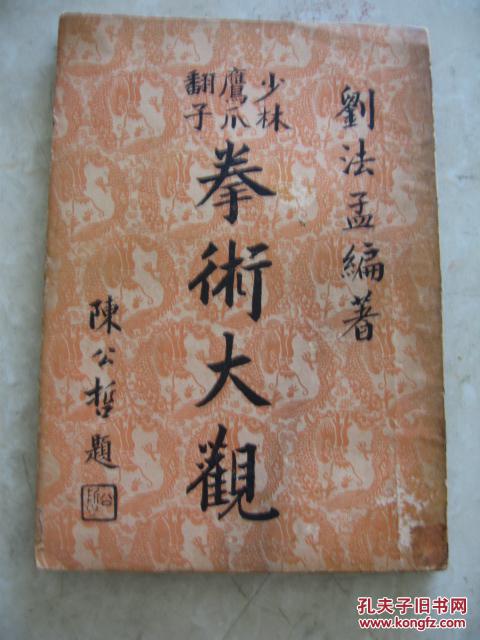 劉法孟編著
少林
鷹爪
翻子
拳術大觀
陳公哲題
孔夫子旧书网
www.kongfz.com